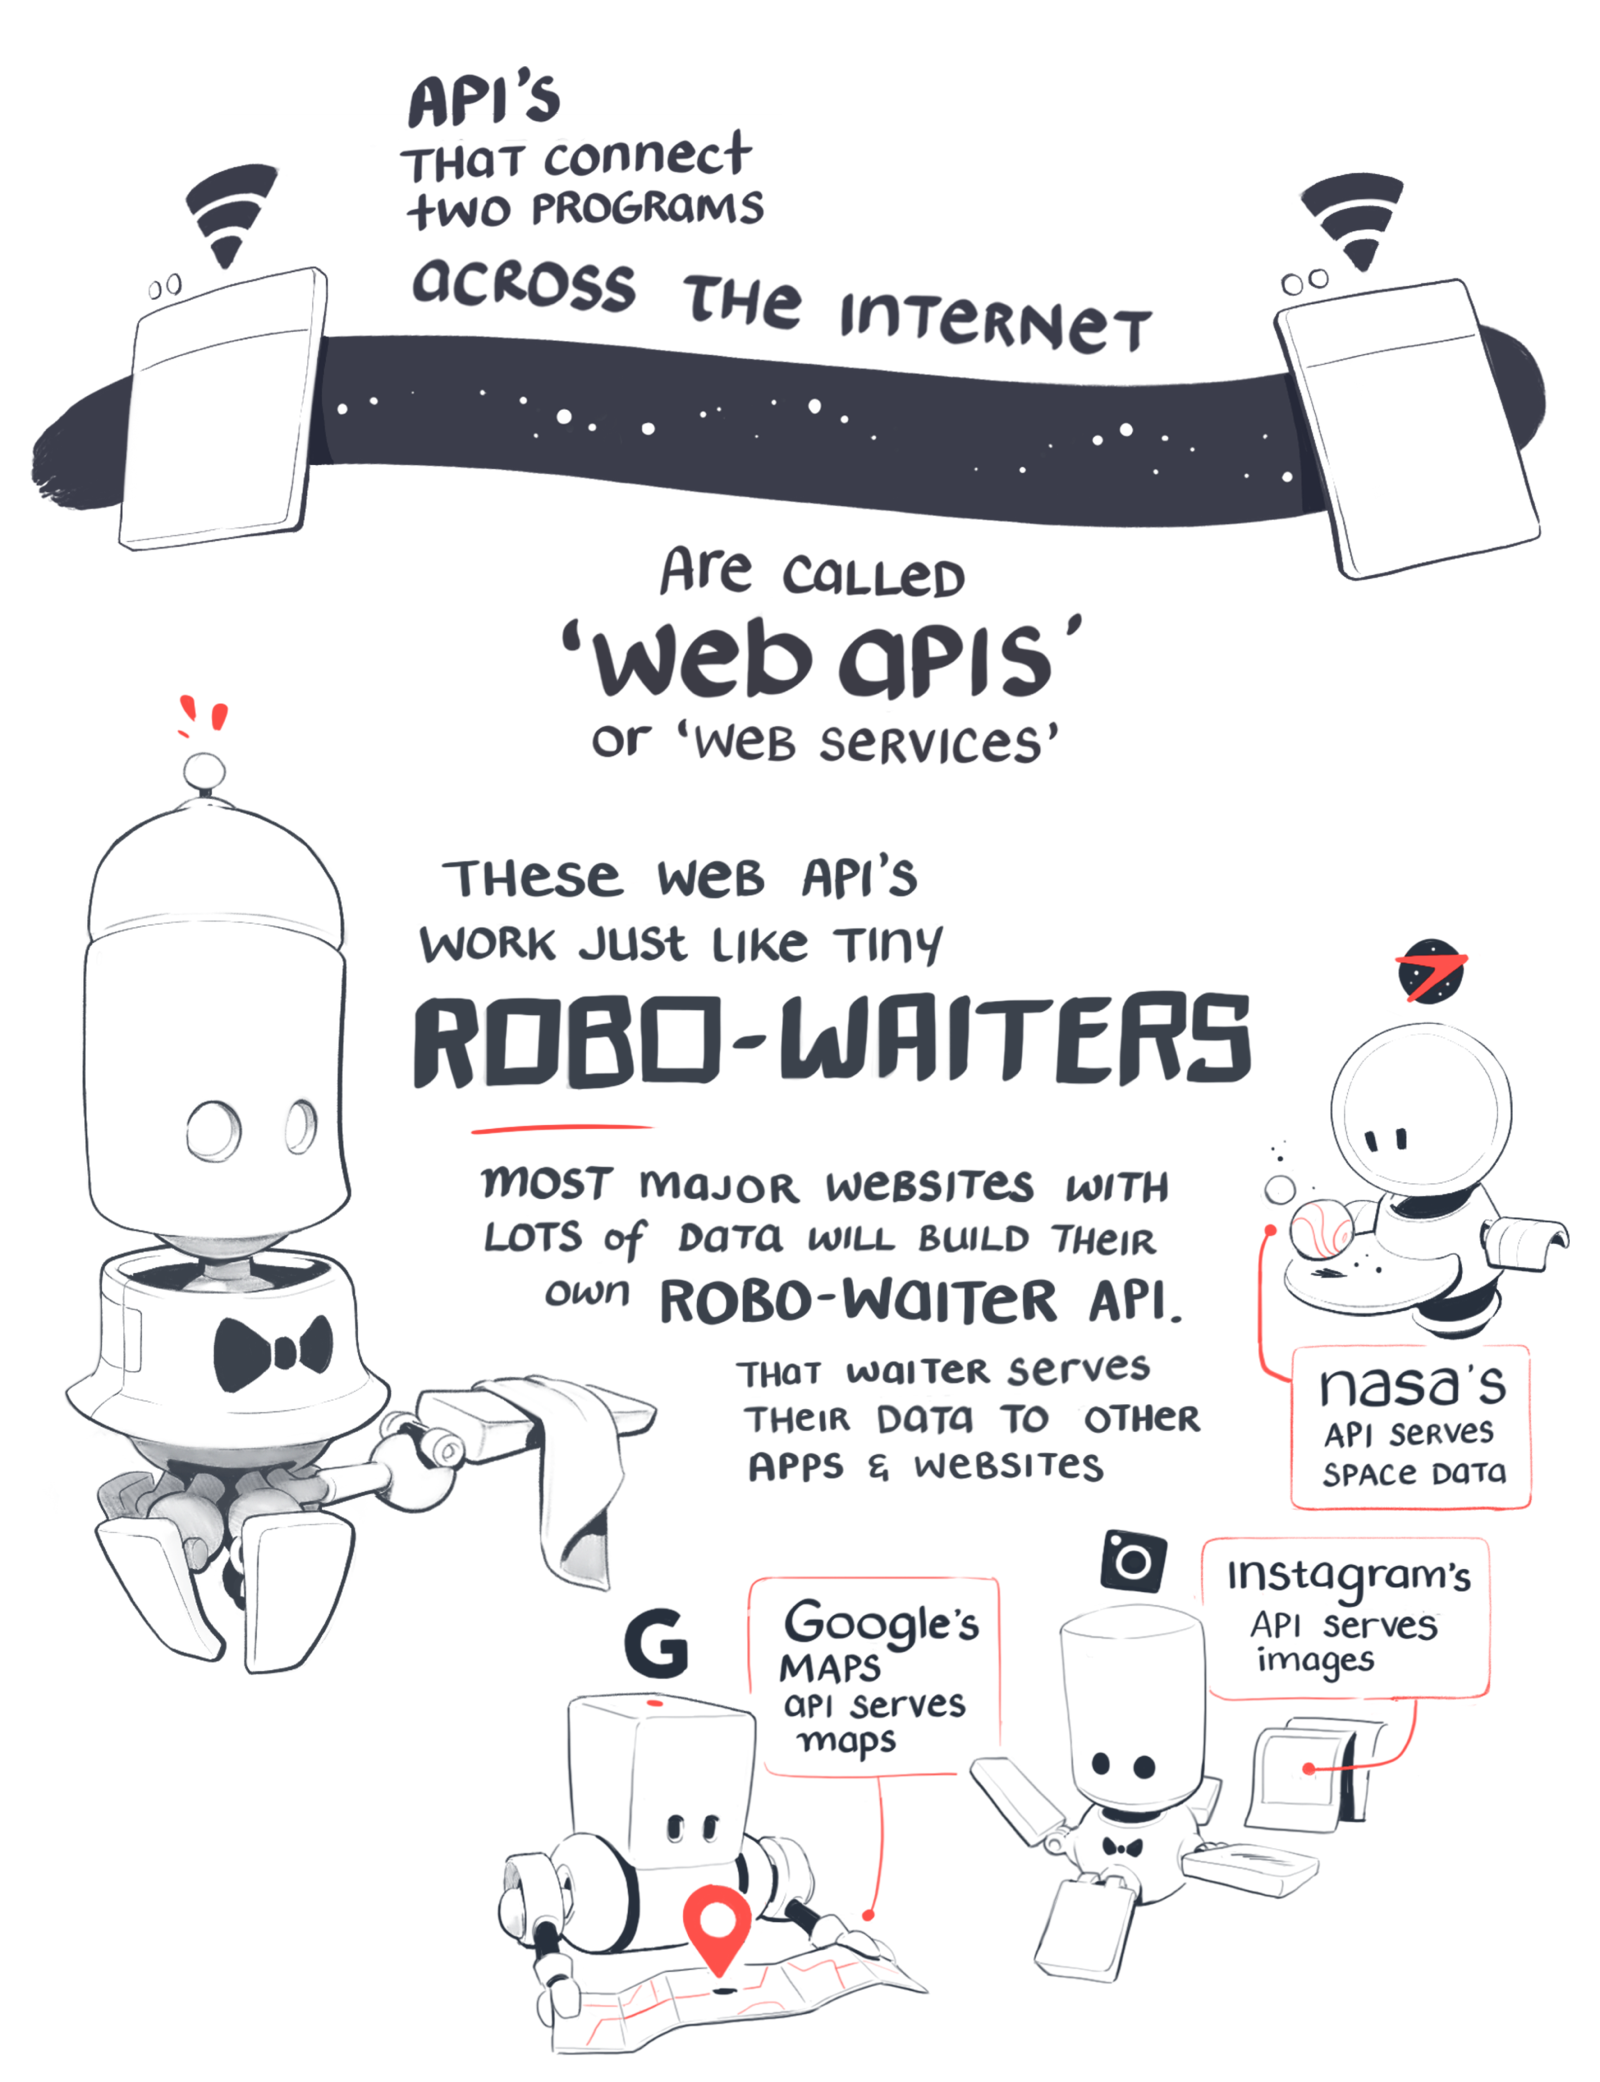 API's
THAT connect
two PROGRAMS
ACROSS THE INTERNET
Are called
'web APIs'
or 'Web services'
These Web API's
work just like tiny
ROBO-WAITERS
most major websites with
lots of data will build their
own ROBO-WAITER API.
that waiter serves
their data to other
apps & websites
nasa's
API serves
space data
Instagram's
API serves
images
G
Google's
MAPS
api serves
maps